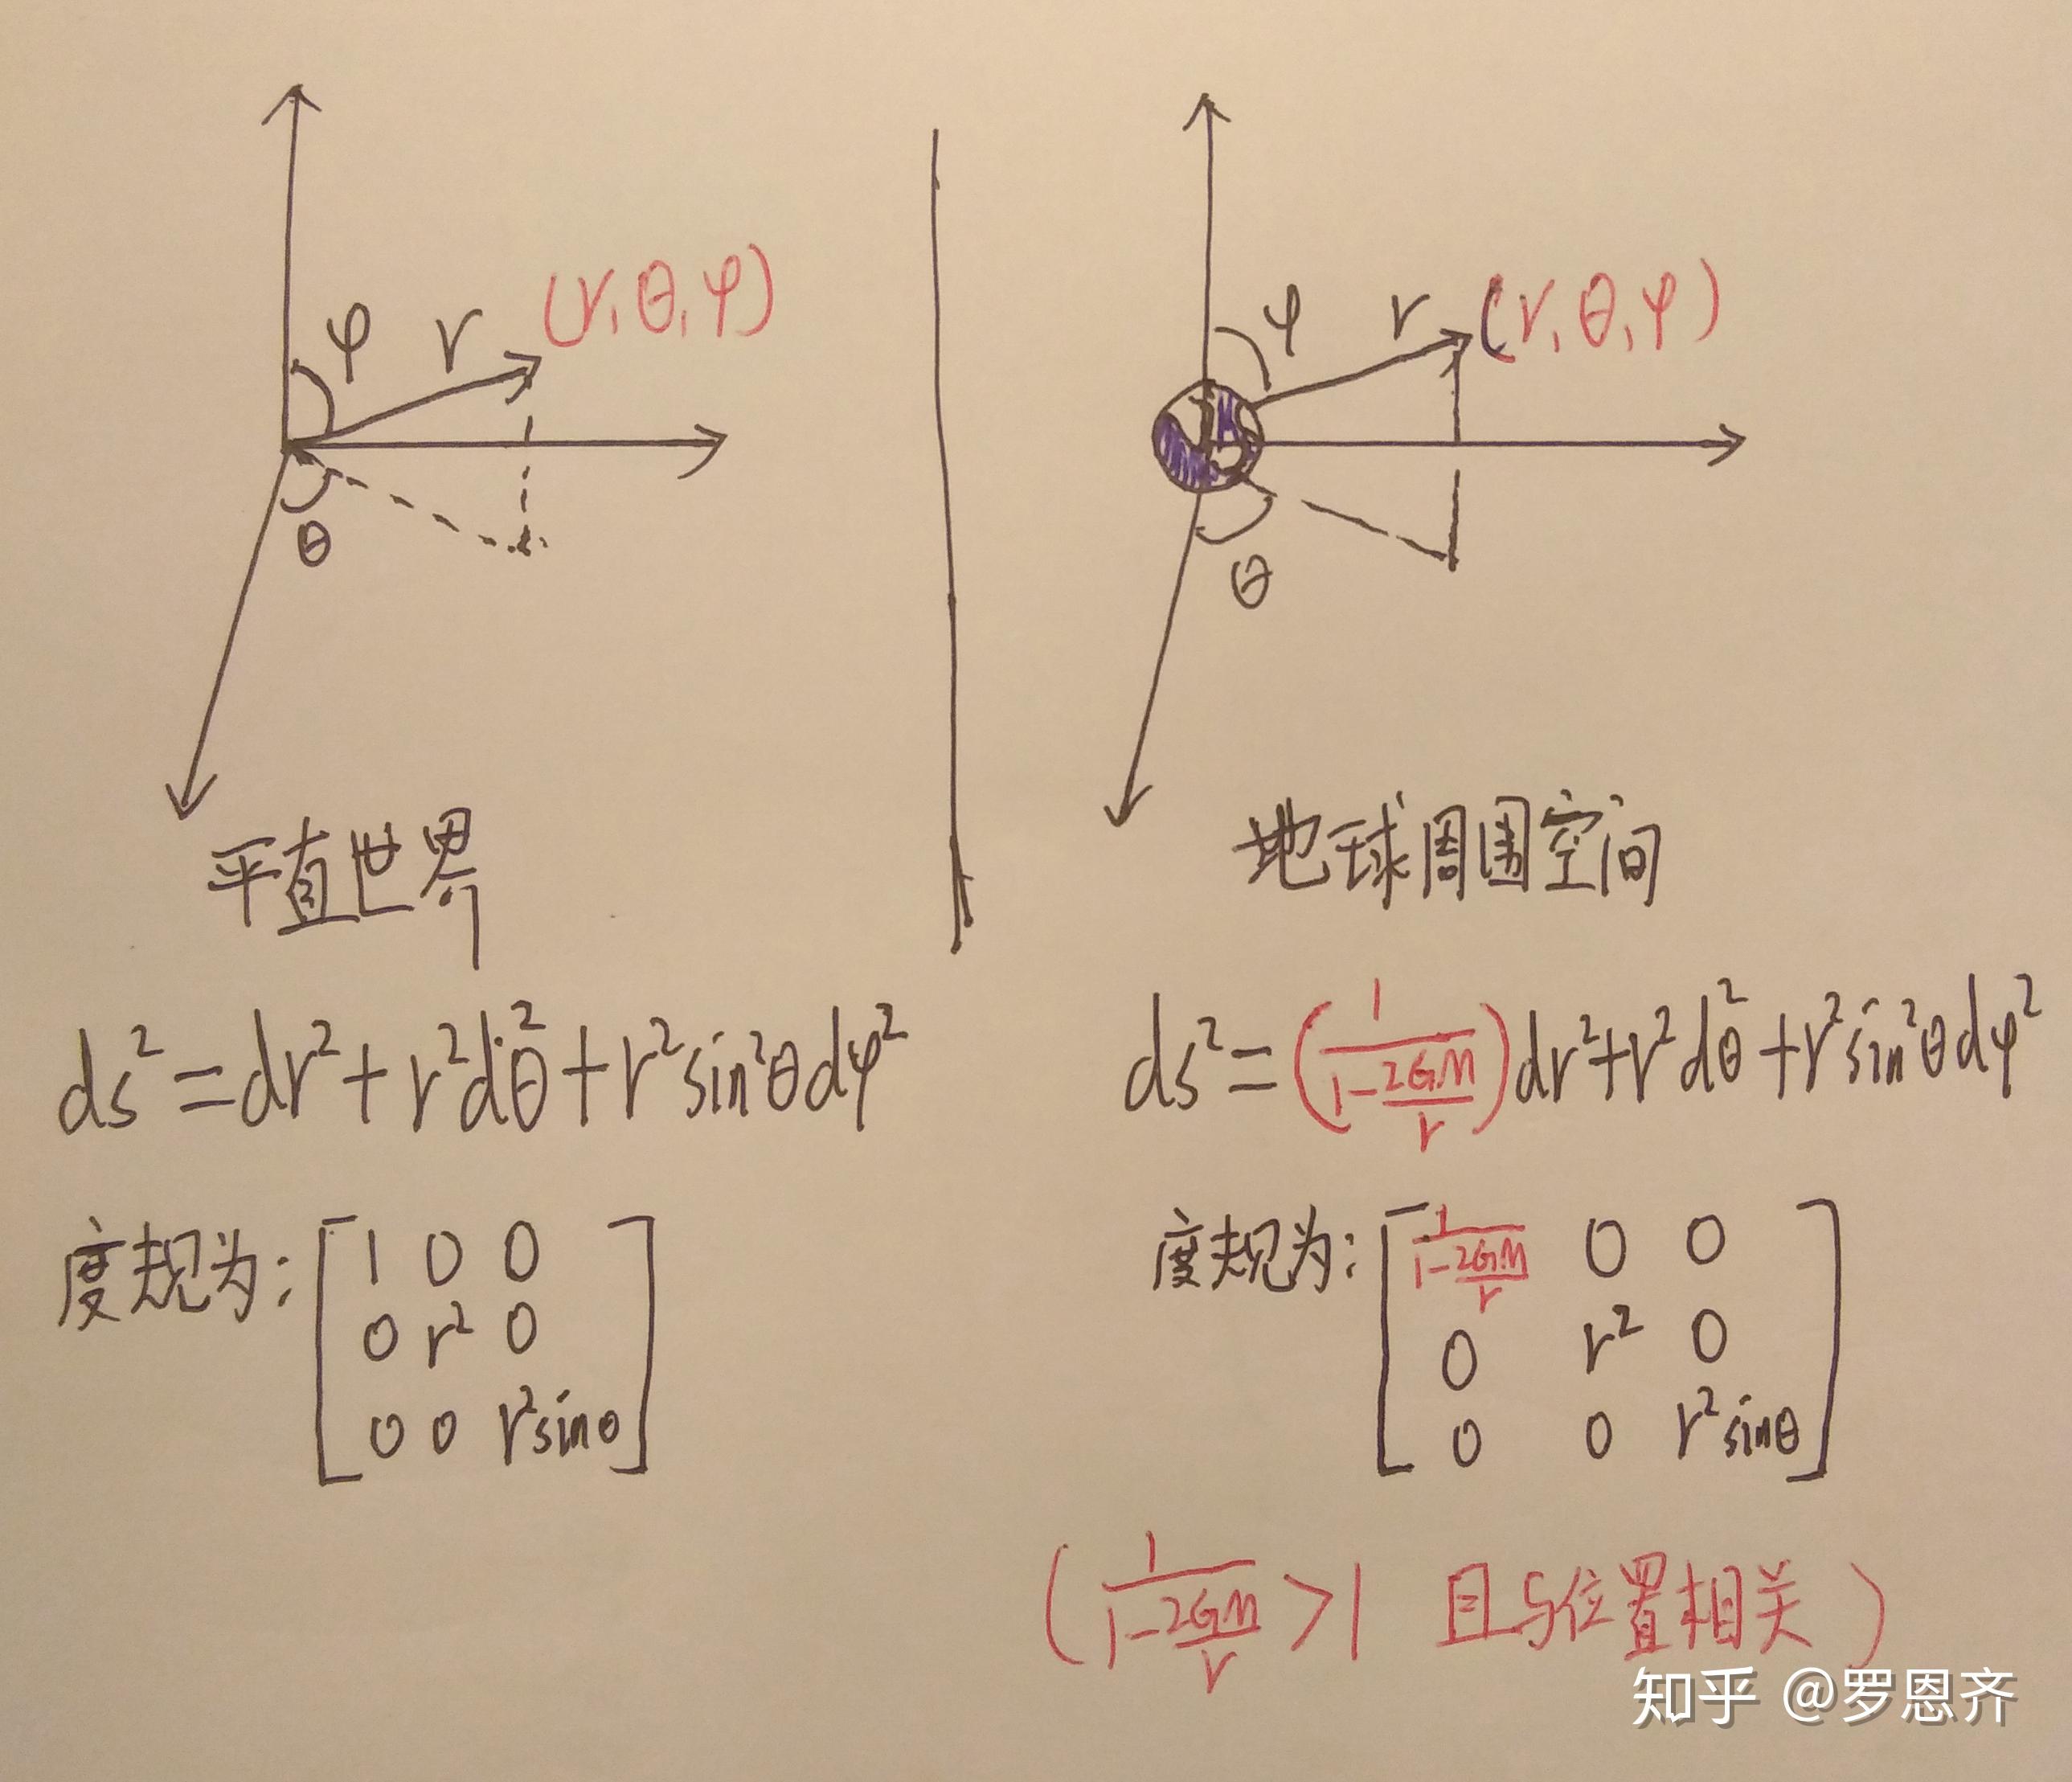 φ r (r,θ,φ)
θ
平直世界
ds²=dr²+r²dθ²+r²sin²θdφ²
度规为:
1 0 0
0 r² 0
0 0 r²sinθ
φ r (r,θ,φ)
θ
地球周围空间
ds²=(1/(1-2GM/r))dr²+r²dθ²+r²sin²θdφ²
度规为:
1/(1-2GM/r) 0 0
0 r² 0
0 0 r²sinθ
(1/(1-2GM/r)>1 且与位置相关)
知乎 @罗恩齐